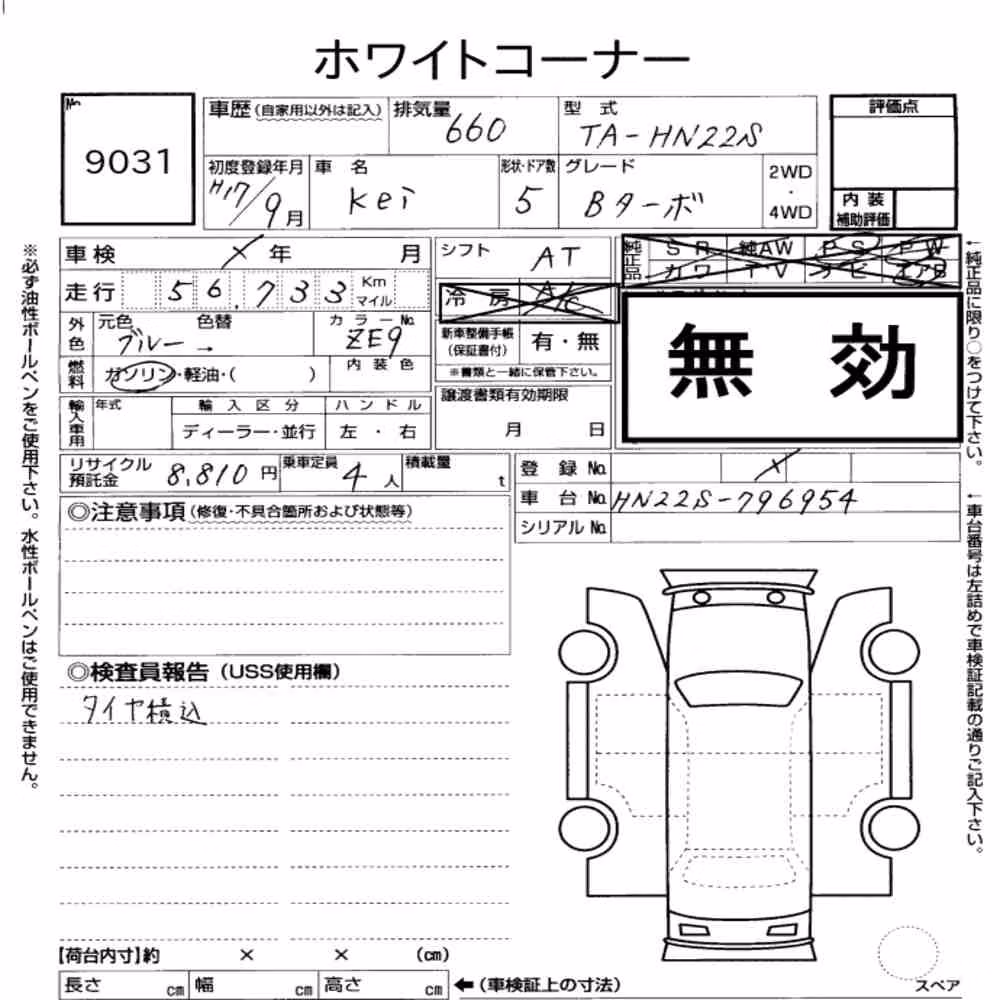 ホワイトコーナー
No. 9031
車歴(自家用以外は記入) 排気量 660 型式 TA-HN22S 評価点
初度登録年月 H17/9月 車名 Kei 形状・ドア数 5 グレード Bターボ 2WD・4WD
内装補助評価
車検 × 年 月 シフト AT
純正品 SR 純AW PS PW
カワ TV ナビ エアB
走行 56,733 Km マイル 冷房 A/C
外色 元色 ブルー 色替 → カラーNo. ZE9 新車整備手帳(保証書付) 有・無
無効
燃料 ガソリン・軽油・( ) 内装色 ※書類と一緒に保管下さい。
輸入車用 年式 輸入区分 ハンドル 譲渡書類有効期限
ディーラー・並行 左・右 月 日
リサイクル預託金 8,810円 乗車定員 4人 積載量 t 登録No. ×
車台No. HN22S-796954
シリアルNo.
◎注意事項(修復・不具合箇所および状態等)
◎検査員報告(USS使用欄)
タイヤ積込
【荷台内寸】約 × × (cm)
長さ cm 幅 cm 高さ cm ←(車検証上の寸法)
スペア
※必ず油性ボールペンをご使用下さい。水性ボールペンはご使用できません。
←純正品に限り○をつけて下さい。
←車台番号は左詰めで車検証記載の通りご記入下さい。